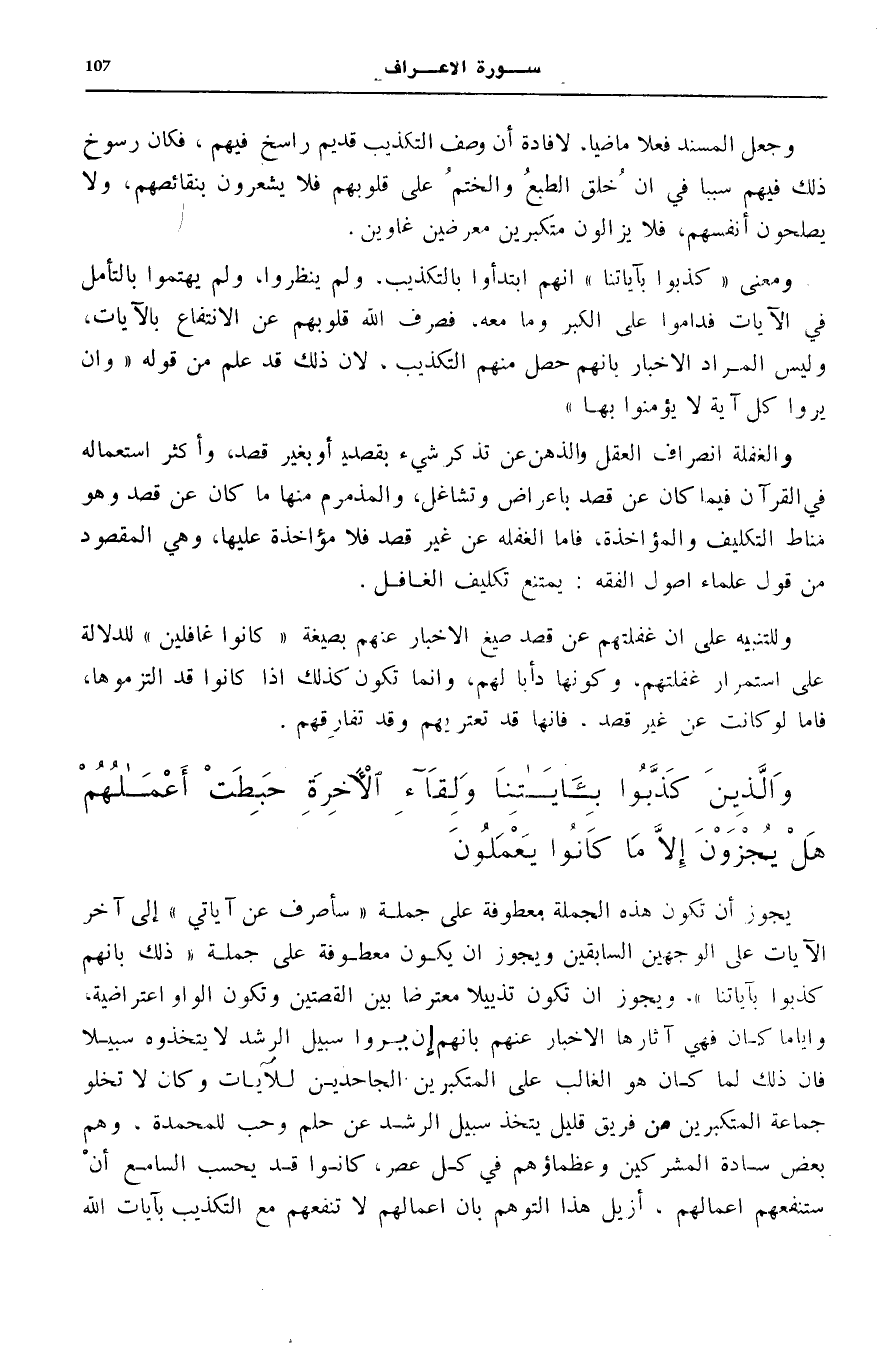 سورة الاعراف 107
وجعل المسند فعلا ماضيا. لافادة أن وصف التكذيب قديم راسخ فيهم ، فكان رسوخ
ذلك فيهم سببا في ان خُلق الطبعُ والختمُ على قلوبهم فلا يشعرون بنقائصهم، ولا
يصلحون أنفسهم، فلا يزالون متكبرين معرضين غاوين .
ومعنى « كذبوا بآياتنا » انهم ابتدأوا بالتكذيب. ولم ينظروا، ولم يهتموا بالتأمل
في الآيات فداموا على الكبر وما معه. فصرف الله قلوبهم عن الانتفاع بالآيات،
وليس المراد الاخبار بانهم حصل منهم التكذيب . لان ذلك قد علم من قوله « وان
يروا كل آية لا يؤمنوا بها »
والغفلة انصراف العقل والذهن عن تذكر شيء بقصد أو بغير قصد، وأكثر استعماله
في القرآن فيما كان عن قصد باعراض وتشاغل، والمذموم منها ما كان عن قصد وهو
مناط التكليف والمؤاخذة، فاما الغفله عن غير قصد فلا مؤاخذة عليها، وهي المقصود
من قول علماء اصول الفقه : يمتنع تكليف الغافل .
وللتنبيه على ان غفلتهم عن قصد صيغ الاخبار عنهم بصيغة « كانوا غافلين » للدلالة
على استمرار غفلتهم. وكونها دأبا لهم، وانما تكون كذلك اذا كانوا قد التزموها،
فاما لو كانت عن غير قصد . فانها قد تعتريهم وقد تفارقهم .
وَالَّذِينَ كَذَّبُوا بِـَٔايَـٰتِنَا وَلِقَآءِ ٱلْأَخِرَةِ حَبِطَتْ أَعْمَـٰلُهُمْ
هَلْ يُجْزَوْنَ إِلاَّ مَا كَانُوا يَعْمَلُونَ
يجوز أن تكون هذه الجملة معطوفة على جملة « سأصرف عن آياتي » إلى آخر
الآيات على الوجهين السابقين ويجوز ان يكون معطوفة على جملة « ذلك بانهم
كذبوا بآياتنا ». ويجوز ان تكون تذييلا معترضا بين القصتين وتكون الواو اعتراضية،
واياما كان فهي آثارها الاخبار عنهم بانهم إن يروا سبيل الرشد لا يتخذوه سبيلا
فان ذلك لما كان هو الغالب على المتكبرين الجاحدين للآيات وكان لا تخلو
جماعة المتكبرين من فريق قليل يتخذ سبيل الرشد عن حلم وحب للمحمدة . وهم
بعض سادة المشركين وعظماؤهم في كل عصر، كانوا قد يحسب السامع أنْ
ستنفعهم اعمالهم . أزيل هذا التوهم بان اعمالهم لا تنفعهم مع التكذيب بآيات الله